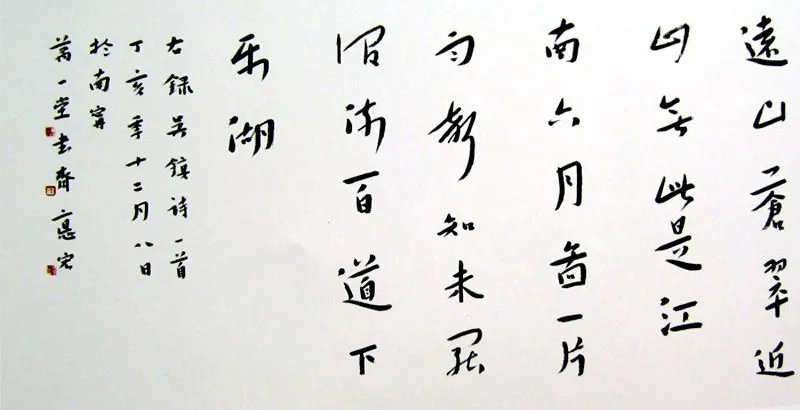 遠山蒼翠近
山無此是江
南六月圖一片
雨聲知未罷
澗流百道下
平湖
右録吳鎮詩一首
丁亥年十二月八日
於南寧
萬一堂書齋